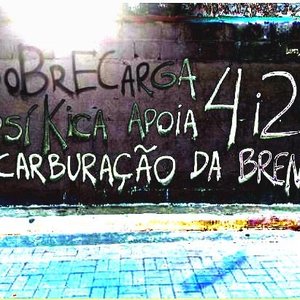 oBRECARGA
PSíKICA APOIA 4i2
CARBURAÇÃO DA BREN